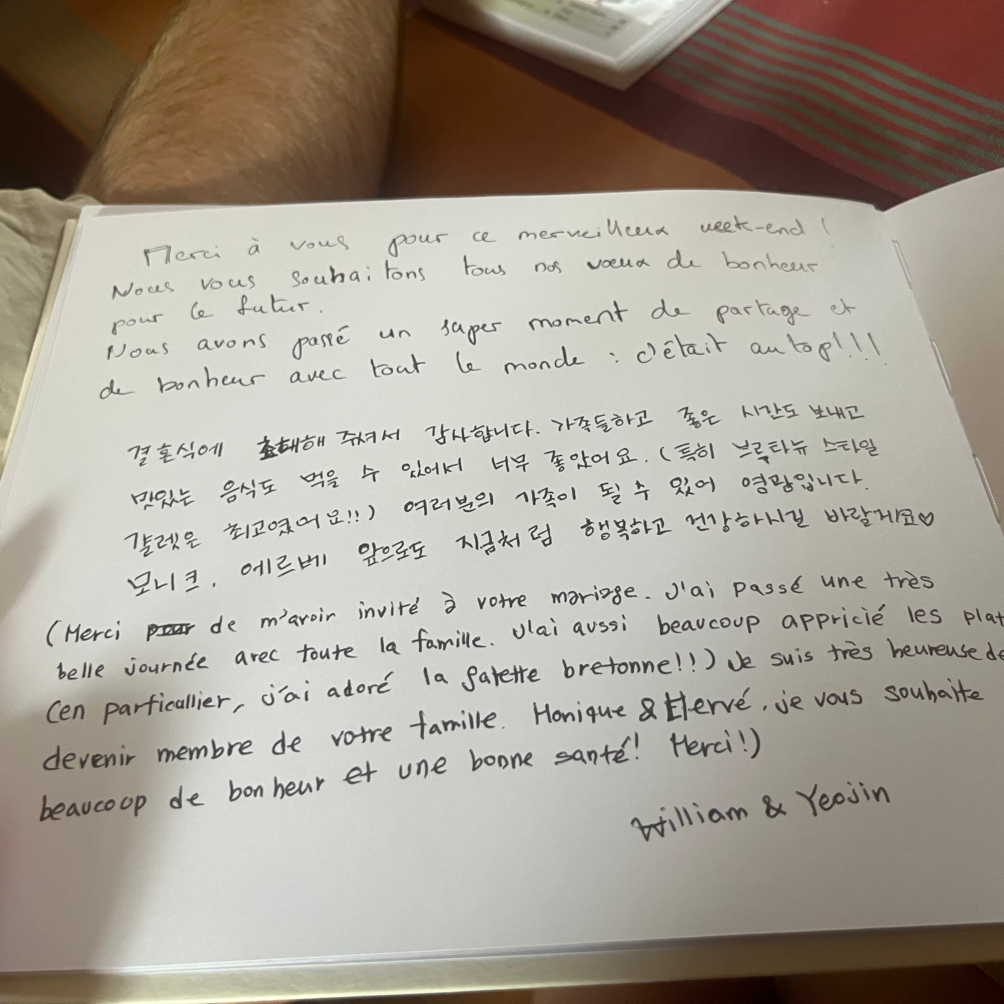 Merci à vous pour ce merveilleux week-end !
Nous vous souhaitons tous nos vœux de bonheur
pour le futur.
Nous avons passé un super moment de partage et
de bonheur avec tout le monde : c'était au top!!!
결혼식에 초대해 주셔서 감사합니다. 가족들하고 좋은 시간도 보내고
맛있는 음식도 먹을 수 있어서 너무 좋았어요. (특히 브르타뉴 스타일
갈렛은 최고였어요!!) 여러분의 가족이 될 수 있어 영광입니다.
모니크, 에르베 앞으로도 지금처럼 행복하고 건강하시길 바랄게요♡
(Merci pour de m'avoir invité à votre mariage. J'ai passé une très
belle journée avec toute la famille. J'ai aussi beaucoup appricié les plat
(en particulier, j'ai adoré la galette bretonne!!) Je suis très heureuse de
devenir membre de votre famille. Monique & Hervé, je vous souhaite
beaucoup de bonheur et une bonne santé! Merci!)
William & Yeojin